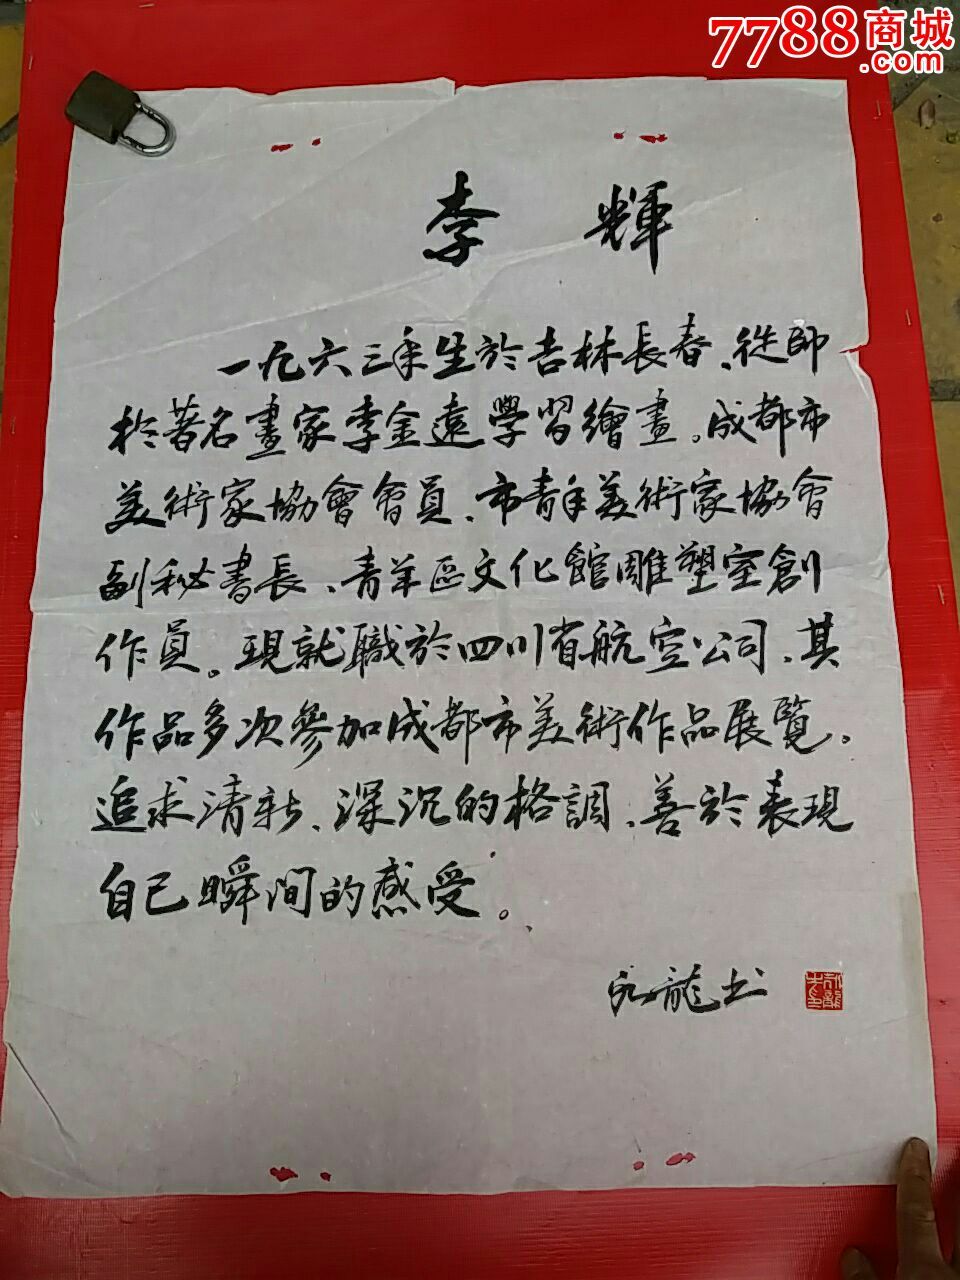 7788商城
.com
李輝
一九六三年生於吉林長春、從師
於著名畫家李金遠學習繪畫。成都市
美術家協會會員、市青年美術家協會
副秘書長、青羊區文化館雕塑室創
作員。現就職於四川省航空公司、其
作品多次參加成都市美術作品展覽。
追求清新、深沉的格調、善於表現
自己瞬间的感受。
龍书